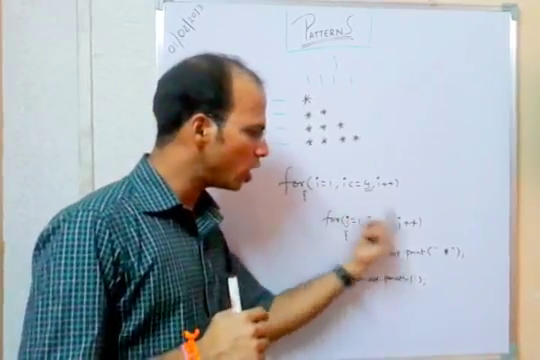 01/02/2013
PATTERNS
*
* *
* * *
* * * *
for(i=1,i<=4,i++)
{
for(j=1, j++)
{
print("*");
println();